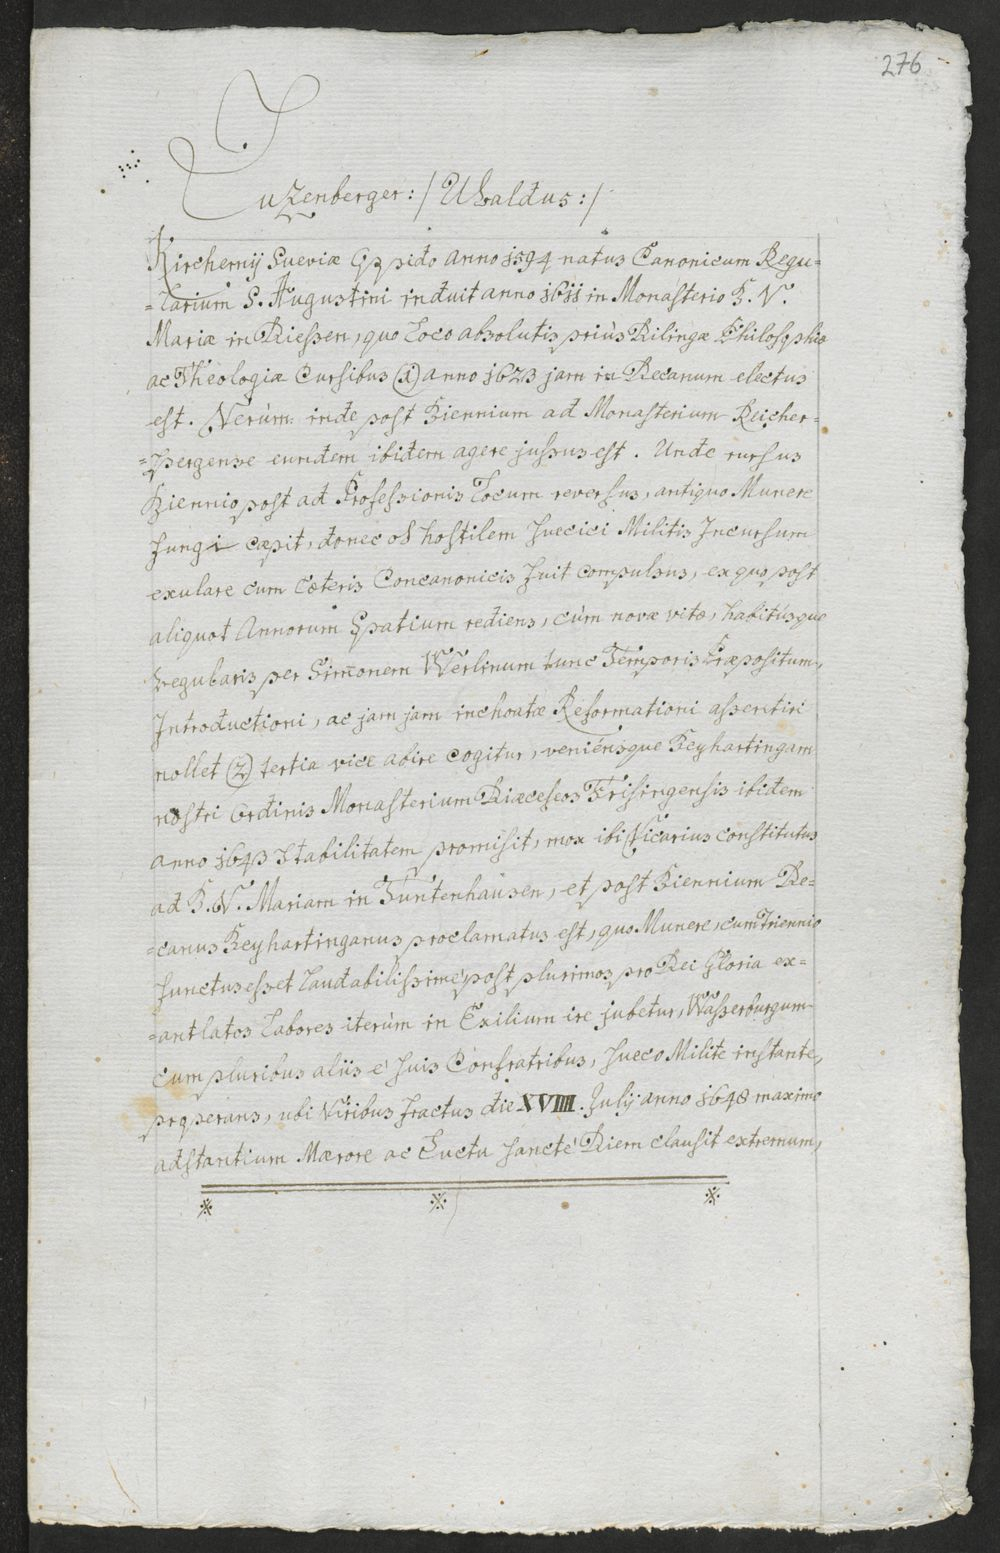 276
Luzenberger :/ Ubaldus :/
Kirchemij Sueviæ Oppido anno 1594 natus Canonicum Regu=
=larium S. Augustini induit anno 1611 in Monasterio B. V.
Mariæ in Diessen, quo Loco absolutis priùs Dilingæ Philosophiæ
ac Theologiæ Cursibus (1) anno 1623 jam in Decanum electus
est. Verùm inde post Biennium ad Monasterium Reicher=
=spergense eundem ibidem agere jussus est. Unde rursus
Biennio post ad Professionis Locum reversus, antiquo Munere
fungi cæpit, donec ob hostilem Suecici Militis Incursum
exulare cum Cæteris Concanonicis fuit compulsus, ex quo post
aliquot Annorum Spatium rediens, cùm novæ vitæ, habitùsque
regularis per Simonem Werlinum tunc Temporis Præpositum,
Introductioni, ac jam jam inchoatæ Reformationi assentiri
nollet (2) tertia vice abire cogitur, veniénsque Beyhartingam
nostri Ordinis Monasterium Diæceseos Frisingensis ibidem
anno 1643 Stabilitatem promisit, mox ibi Vicarius constitutus
ad B. V. Mariam in Tuntenhausen, et post Biennium De=
=canus Beyhartinganus proclamatus est, quo Munere, cum Triennio
functus esset Laudabilissimè post plurimos pro Dei Gloria ex=
=antlatos Labores iterùm in Exilium ire jubetur, Wasserburgum
cum pluribus aliis è suis Confratribus, Sueco Milite instante,
properans, ubi Viribus fractus die XVIIII. Julij anno 1648 maximo
adstantium Mærore ac Luctu sanctè Diem clausit extremum,